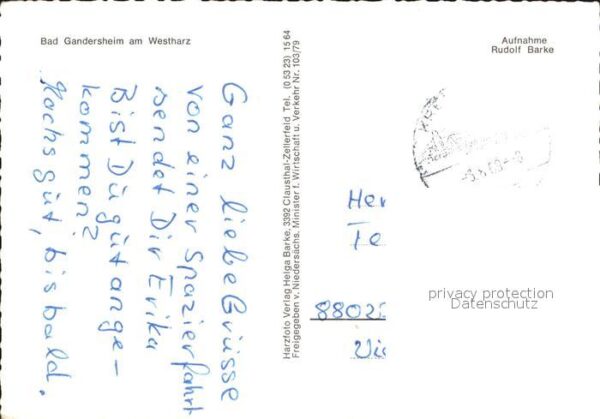 Bad Gandersheim am Westharz
Aufnahme
Rudolf Barke
Ganz liebe Grüsse
von einer Spazierfahrt
sendet Dir Erika
Bist Dü güt ange-
kommen?
Machs güt, bis bald.
Harzfoto Verlag Helga Barke, 3392 Clausthal-Zellerfeld Tel. (0 53 23) 15 64
Freigegeben v. Niedersächs. Minister f. Wirtschaft u. Verkehr Nr. 103/79
Her
Te
8802
privacy protection
Datenschutz